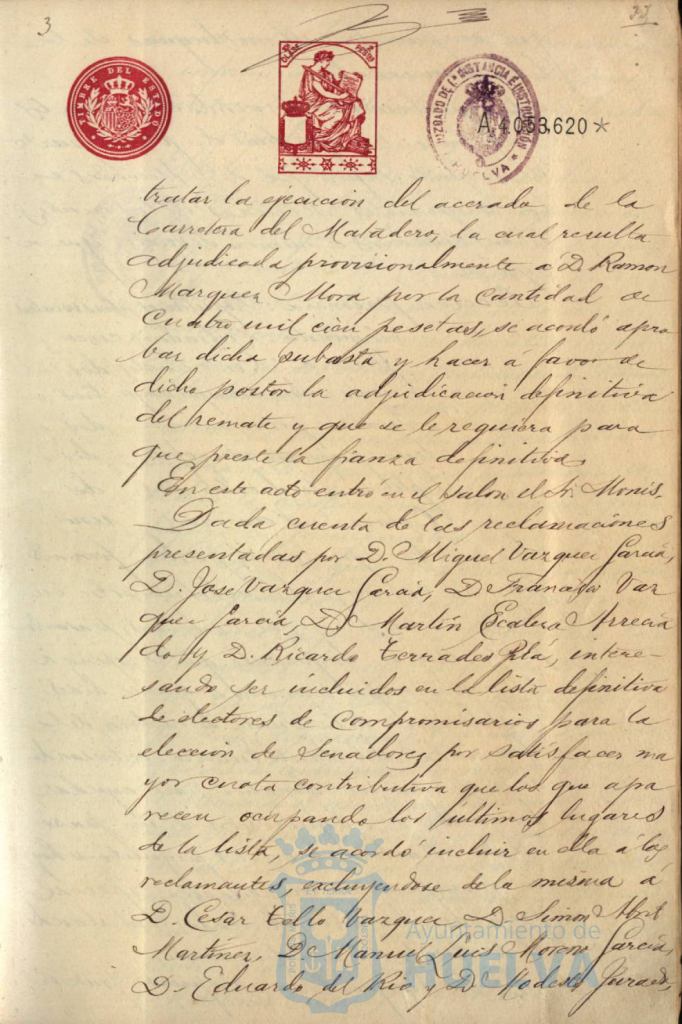 3
33
TIMBRE DEL ESTADO
10ª CLASE
2 PESETAS
JUZGADO DE 1ª INSTANCIA E INSTRUCCIÓN
HUELVA
A.4053,620*
tratar la ejecucion del acerado de la
Carretera del Matadero, la cual resulta
adjudicada provisionalmente a D. Ramon
Marquez Mora por la cantidad de
cuatro mil cien pesetas, se acordó apro
bar dicha subasta y hacer á favor de
dicho postor la adjudicacion definitiva
del remate y que se le requiera para
que preste la fianza definitiva.
En este acto entró en el salon el Sr. Monis.
Dada cuenta de las reclamaciones
presentadas por D. Miguel Vazquez Garcia,
D. Jose Vazquez Garcia, D. Francisco Vaz
quez Garcia, D. Martín Escalera Arrecia
do y D. Ricardo Terrades Plá, intere-
sando ser incluidos en la lista definitiva
de electores de compromisarios para la
elección de Senadores por satisfacer ma
yor cuota contributiva que los que apa
recen ocupando los últimos lugares
de la lista, se acordó incluir en ella á los
reclamantes, excluyendose de la misma á
D. Cesar Tello Vazquez, D. Simon Abril
Martinez, D. Manuel Luis Moreno Garcia,
D. Eduardo del Rio y D. Modesto Jurado,
Ayuntamiento de
HUELVA